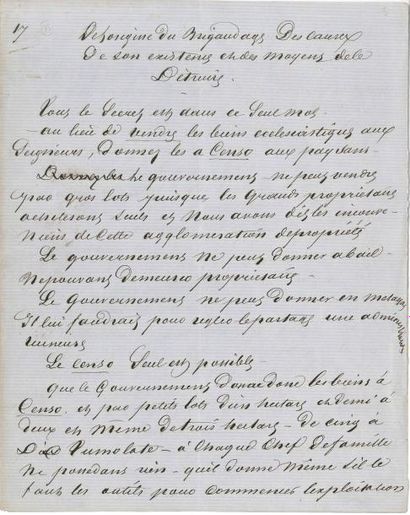 17
De l'origine du Brigandage Des causes
De son existence et des moyens de le
Détruire.
Tous le Secret est dans ce Seul mot
au lieu de vendre les biens ecclesiastiques aux
Seigneurs, donnez les a Censo aux paysans.
Le gouvernement ne peut vendre
par gros lots puisque les Grands propriétaires
acheteront Seuls et Nous avons dit les inconve-
niens de Cette agglomeration de propriété
Le gouvernement ne peut donner a bail
Ne pouvant demeurer proprietaire
Le gouvernement ne peut donner en
Il lui faudrait pour regler le partage une
Le Censo Seul est possible
que le Gouvernement donne donc les biens à
Censo, et par petits lots d'un hectare et demi à
deux et même de trois hectares - de cinq à
à chaque Chef de famille
ne possedant rien - qu'il donne même s'il le
faut les outils pour commencer l'exploitation